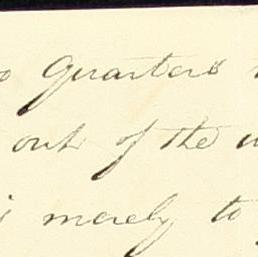 quarters
out of the
merely to